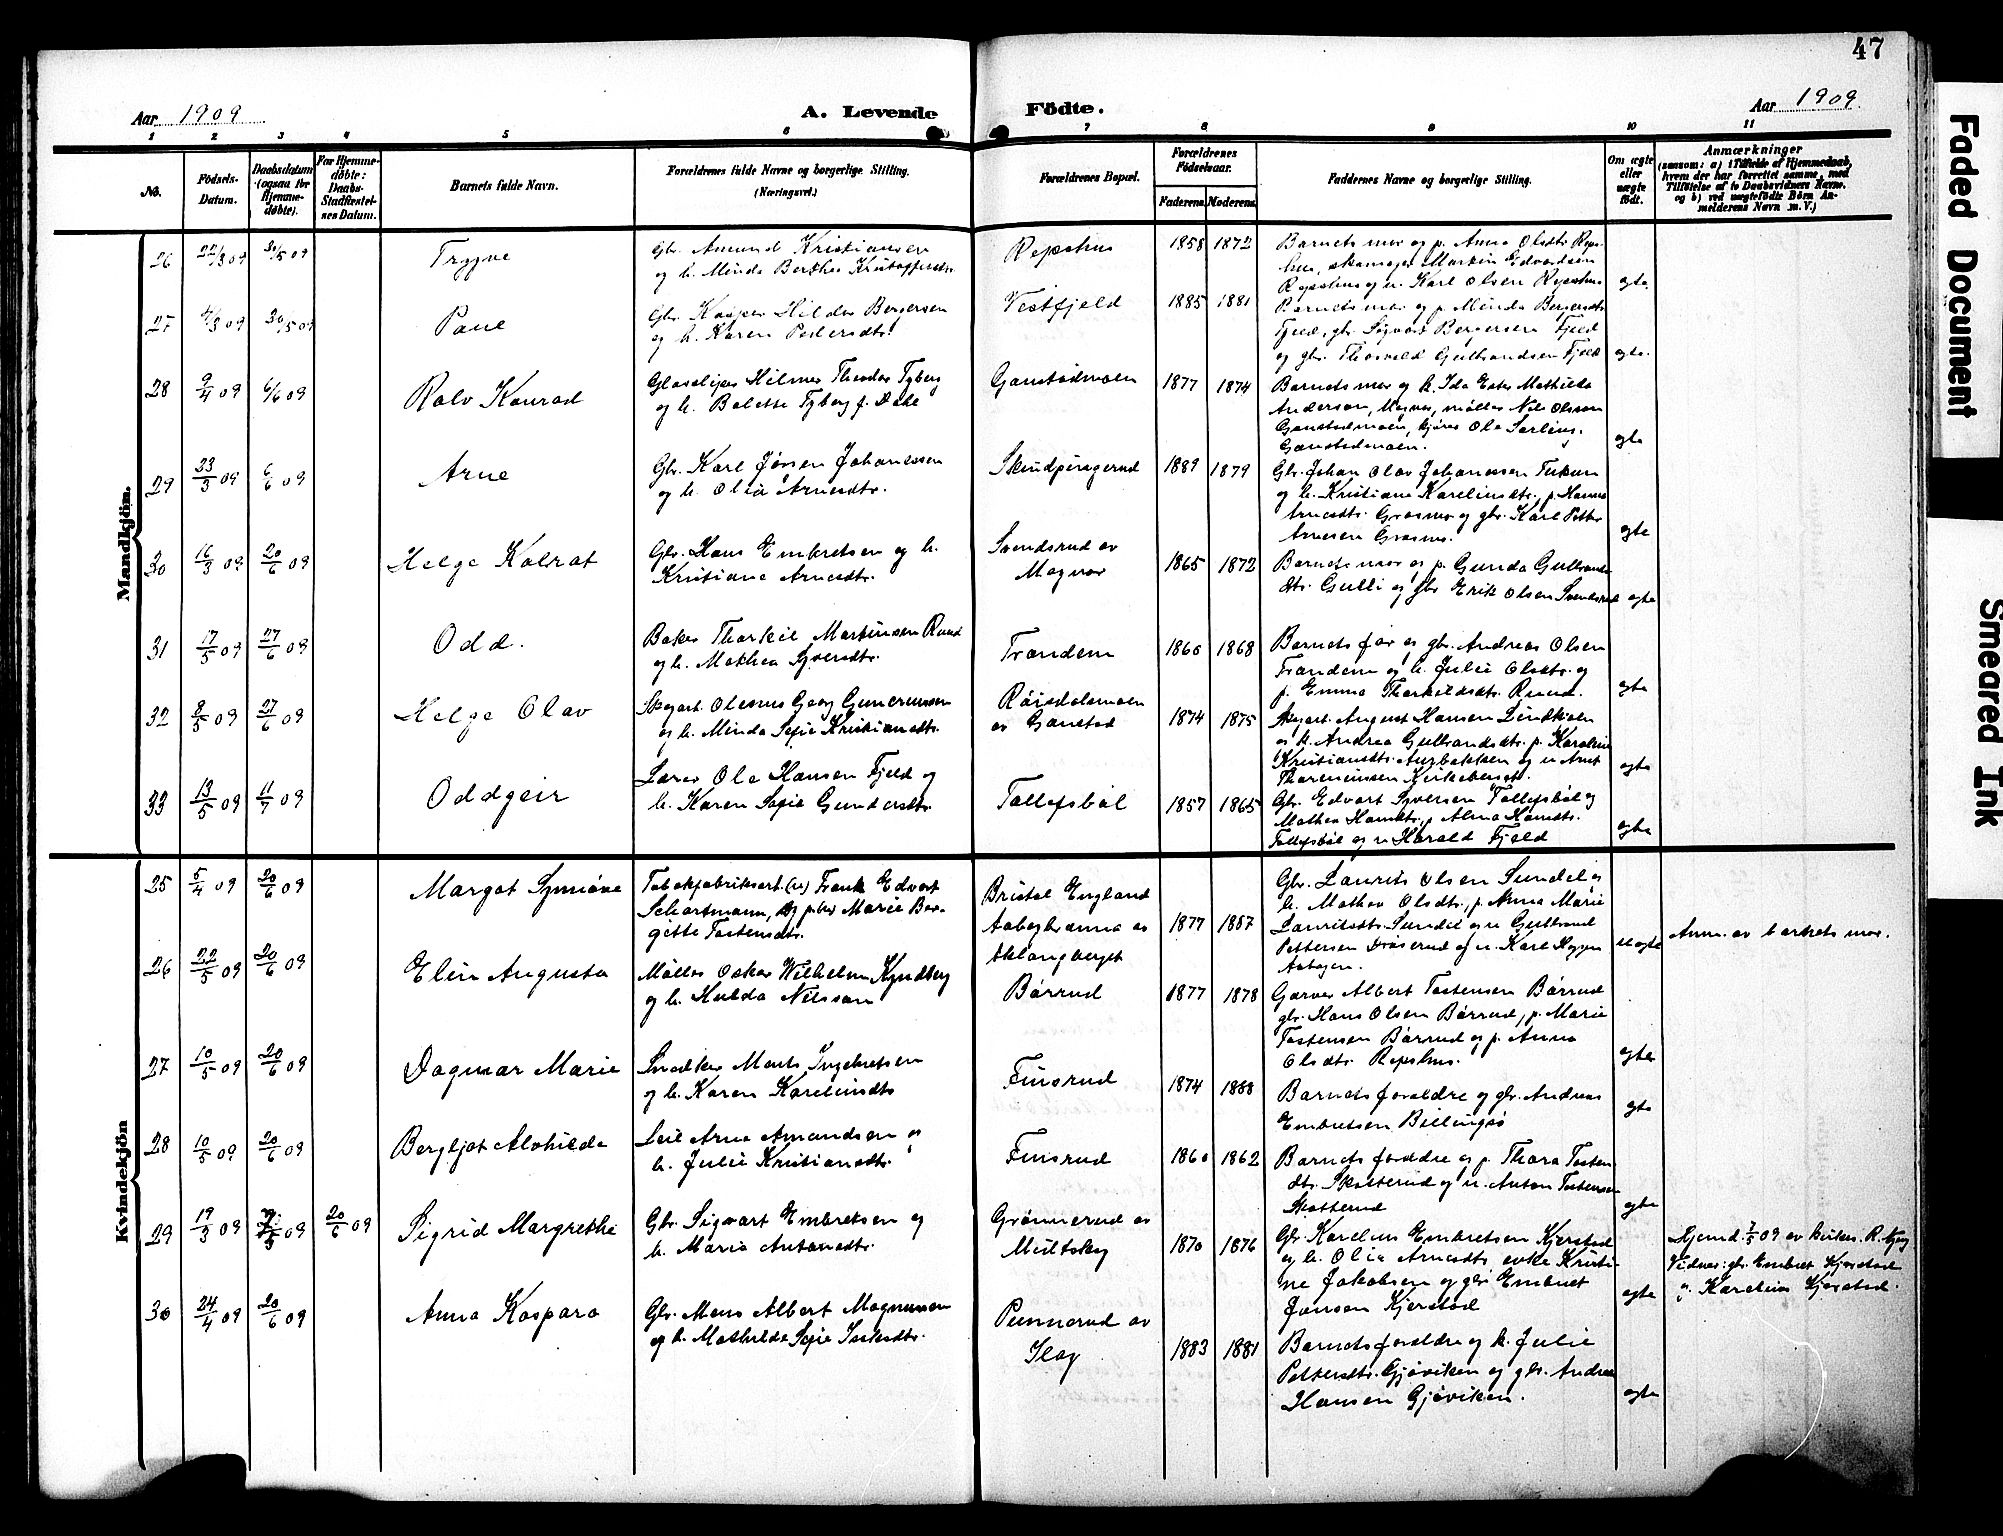 47
Aar 1909
A. Levende
Födte.
Aar 1909.
1 2 3 4 5 6 7 8 9 10 11
No.
Födsels-
Datum.
Daabsdatum
(ogsaa for
Hjemme-
döbte).
For Hjemme-
döbte:
Daabs-
Stadfæstel-
nes Datum.
Barnets fulde Navn.
Forældrenes fulde Navne og borgerlige Stilling.
(Næringsvei.)
Forældrenes Bopæl.
Forældrenes
Födselsaar.
Faderens. Moderens.
Faddernes Navne og borgerlige Stilling.
Om ægte
eller
uægte
födt.
Anmærkninger
(saasom: a) i Tilfælde af Hjemmedaab,
hvem der har forrettet samme, med
Tilföielse af to Daabsvidners Navne.
og b) ved uægtefödte Börn An-
melderens Navn m. V.)
Mandkjön.
26 22/3 09 30/5 09 Trygve
Gbr. Amund Kristiansen
og h. Minda Berthea Kristoffersdtr.
Repshus 1858 1872
Barnets mor og p. Anna Olsdtr. Reps-
hus, skomager Martin Edvardsen
Repshus og u. Karl Olsen Repshus
egte
27 4/3 09 30/5 09 Paul
Gbr. Kasper Hilder Bergersen
og h. Karen Pedersdtr.
Vestfjeld 1885 1881
Barnets mor og p. Minda Bergersdtr.
Fjeld, gbr. Sigvart Bergersen Fjeld
og gbr. Thorvald Gulbrandsen Fjeld
egte.
28 9/4 09 6/6 09 Ralv Konrad
Glassliper Hilmer Theodor Tyberg
og h. Bolette Tyberg f. Dale
Gaustadmoen 1877 1874
Barnets mor og h. Ida Ester Mathilda
Anderson, Magnor, møller Nils Olsson
Gaustadmoen, kjører Ola Sarlins.
Gaustadmoen.
egte
29 23/3 09 6/6 09 Arne
Gbr. Karl Jørgen Johanessen
og h. Olia Arnesdtr.
Skindpungerud 1889 1879
Gbr. Johan Olav Johanessen Tukun
og h. Kristiane Karelinsdtr., p. Hanna
Arnesdtr. Grasmo og gbr. Karl Petter
Arnesen Grasmo.
egte
30 16/3 09 20/6 09 Helge Kolrat
Gbr. Hans Embretsen og h.
Kristiane Arnesdtr.
Svendsrud av
Magnor
1865 1872
Barnets mor og p. Gunda Gulbrands-
dtr. Gulli og gbr Erik Olsen Svendsrud egte
31 17/5 09 27/6 09 Odd.
Baker Thorkil Martinsen Ruud
og h. Mathea Syversdtr.
Trandem 1860 1868
Barnets far og gbr. Andreas Olsen
Trandem og h. Julie Olsdtr. og
p. Emma Thorkildsdtr. Ruud.
egte
32 8/5 09 27/6 09 Helge Olav
Skogarb. Olenus Georg Gunerussen
og h. Minda Sofie Kristiansdtr.
Røisdalsmoen
av Gaustad
1874 1875
Skogarb. August Hansen Lindmoen
og h. Andrea Gulbrandsdtr. p. Karoline
Kristiansdtr. Augbakken og u. Arnt
Thoreniussen Kirkebersdt.
egte
33 13/5 09 11/7 09 Oddgeir
Lærer Ole Hansen Fjeld og
h. Karen Sofie Gundersdtr.
Tollefsbøl 1857 1865
Gbr. Edvart Syversen Tollefsbøl og
Mathea Hansdtr., p. Alma Hansdtr.
Tollefsbøl og u. Harald Fjeld
egte
Kvindekjön
25 5/4 09 20/6 09 Margot Synnøve
Tobakfabriksarb. (u) Frank Edvart
Schartmann, og piker Marie Ber-
gette Tostensdtr.
Bristol England
Aabogbrænna av
Sklangberget
1877 1887
Gbr. Laurits Olsen Sundel og
h. Mathea Olsdtr., p. Anna Marie
Lauritsdtr. Sundel og u Gulbrand
Pettersen Draserud og u. Karl Haagen
Aabogen.
uegte
Anm. av barnets mor.
26 22/5 09 20/6 09 Elin Augusta
Møller Oskar Wilhelm Kyndberg
og h. Hulda Nilsson
Børrud 1877 1878
Garver Albert Tostensen Børrud
gbr. Hans Olsen Børrud, p. Marie
Tostensen Børrud og p. Anna
Olsdtr. Repshus.
egte
27 10/5 09 20/6 09 Dagmar Marie
Snedker Mons Ingebretsen
og h. Karen Karelinsdtr
Finsrud 1874 1888
Barnets foreldre og gbr. Andreas
Embretsen Billingsø
egte
28 10/5 09 20/6 09 Bergljot Alvhilde
Leil Arne Amundsen og
h. Julie Kristiansdtr.
Finsrud 1860 1862
Barnets foreldre og p. Thora Tosten-
dtr. Skotterud og u. Anton Tostensen
Skotterud
egte
29 19/3 09 7/5 09 20/6 09 Sigrid Margrethe
Gbr. Sigvart Embretsen og
h. Maria Antonsdtr.
Grønnerud av
Meitskog
1870 1876
Gbr. Karelius Embretsen Kjerstad
og h. Olia Arnesdtr. enke Kristi-
ne Jakobsen og gbr. Embret
Jonsen Kjerstad
egte
Hjemd. 7/5 09 av kirkes. R.
Vidner: gbr. Embret Kjerstad
og Karelius Kjerstad.
30 24/4 09 20/6 09 Anna Kaspara
Gbr. Mons Albert Magnussen
og h. Mathilde Sofie
Punnerud av
Skog
1883 1881
Barnets foreldre og h. Julie
Pettersdtr. Gjøviken og gbr. Andreas
Hansen Gjøviken.
egte
Faded Document
Smeared Ink